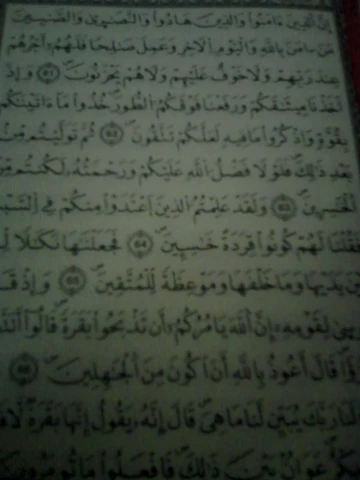 إِنَّ الَّذِينَ ءَامَنُوا وَالَّذِينَ هَادُوا وَالنَّصَٰرَىٰ وَالصَّٰبِـِٔينَ
مَنْ ءَامَنَ بِاللَّهِ وَالْيَوْمِ الْءَاخِرِ وَعَمِلَ صَٰلِحًا فَلَهُمْ أَجْرُهُمْ
عِندَ رَبِّهِمْ وَلَا خَوْفٌ عَلَيْهِمْ وَلَا هُمْ يَحْزَنُونَ ٦٢ وَإِذْ
أَخَذْنَا مِيثَٰقَكُمْ وَرَفَعْنَا فَوْقَكُمُ الطُّورَ خُذُوا مَا ءَاتَيْنَٰكُم
بِقُوَّةٍ وَاذْكُرُوا مَا فِيهِ لَعَلَّكُمْ تَتَّقُونَ ٦٣ ثُمَّ تَوَلَّيْتُم مِّن
بَعْدِ ذَٰلِكَ فَلَوْلَا فَضْلُ اللَّهِ عَلَيْكُمْ وَرَحْمَتُهُ لَكُنتُم مِّنَ
الْخَٰسِرِينَ ٦٤ وَلَقَدْ عَلِمْتُمُ الَّذِينَ اعْتَدَوْا مِنكُمْ فِي السَّبْ
فَقُلْنَا لَهُمْ كُونُوا قِرَدَةً خَٰسِـِٔينَ ٦٥ فَجَعَلْنَٰهَا نَكَٰلًا لِّ
بَيْنَ يَدَيْهَا وَمَا خَلْفَهَا وَمَوْعِظَةً لِّلْمُتَّقِينَ ٦٦ وَإِذْ قَ
لِقَوْمِهِ إِنَّ اللَّهَ يَأْمُرُكُمْ أَن تَذْبَحُوا بَقَرَةً قَالُوا
قَالَ أَعُوذُ بِاللَّهِ أَنْ أَكُونَ مِنَ الْجَٰهِلِينَ ٦٧
لَنَا رَبَّكَ يُبَيِّن لَّنَا مَا هِيَ قَالَ إِنَّهُ يَقُولُ إِنَّهَا بَقَرَةٌ لَّا
عَوَانٌ بَيْنَ ذَٰلِكَ فَافْعَلُوا مَا تُؤْمَرُونَ